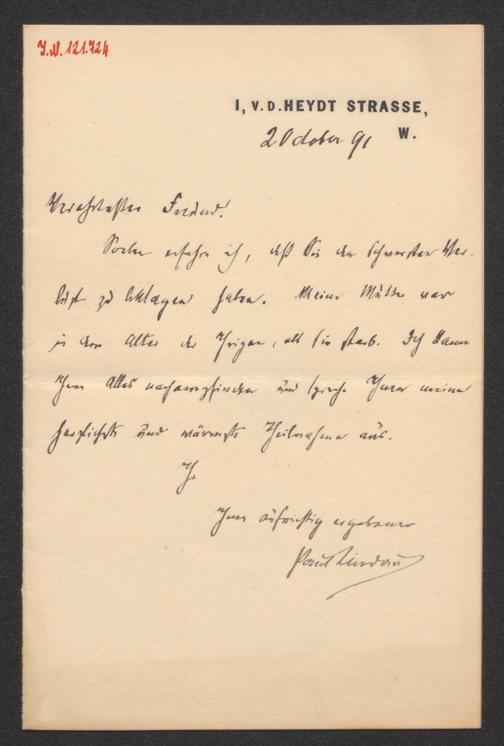 J.N. 121.724
I, V. D. HEYDT STRASSE,
2 October 91 W.
Verehrtester Freund!
Soeben erfahre ich, daß Sie den schwersten Ver-
lust zu beklagen haben. Meine Mutter war
in dem Alter der Ihrigen, als sie starb. Ich kann
Ihnen Alles nachempfinden und spreche Ihnen meine
herzlichste und wärmste Theilnahme aus.
Ihr
aufrichtig ergebener
Paul Lindau